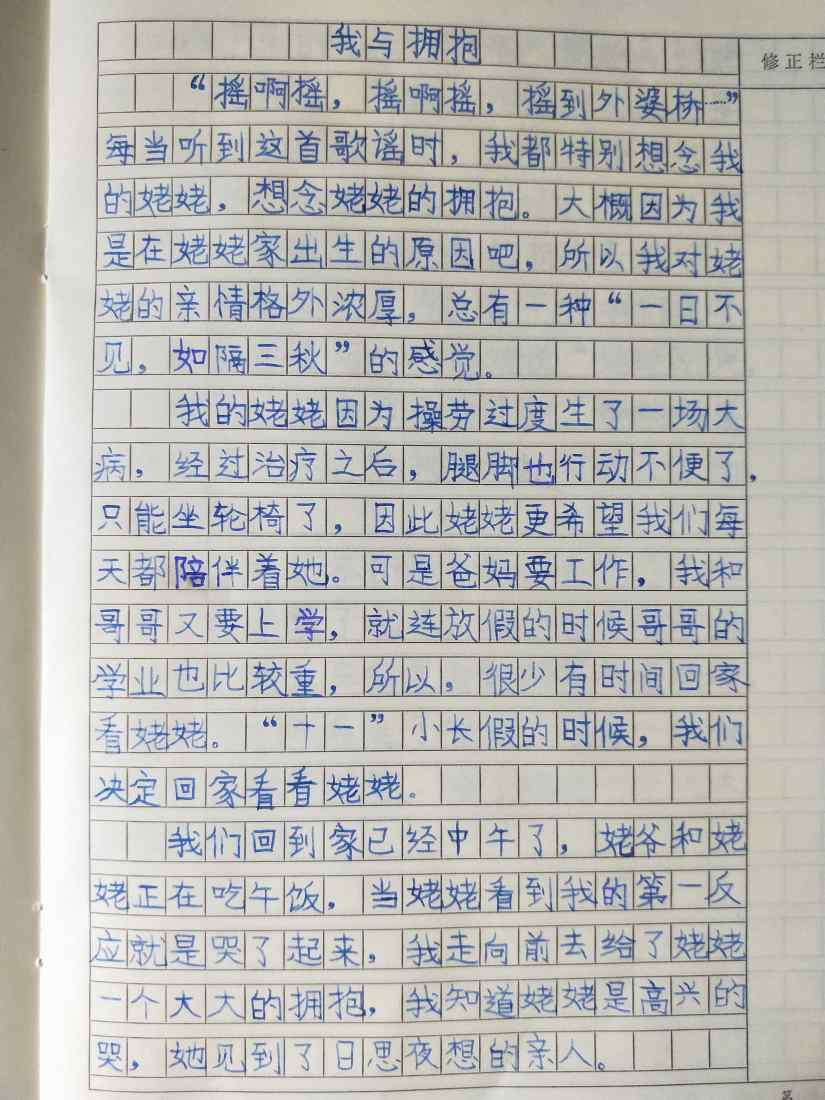 我与拥抱
修正栏
“摇啊摇，摇啊摇，摇到外婆桥……”
每当听到这首歌谣时，我都特别想念我
的姥姥，想念姥姥的拥抱。大概因为我
是在姥姥家出生的原因吧，所以我对姥
姥的亲情格外浓厚，总有一种“一日不
见，如隔三秋”的感觉。
我的姥姥因为操劳过度生了一场大
病，经过治疗之后，腿脚也行动不便了，
只能坐轮椅了，因此姥姥更希望我们每
天都陪伴着她。可是爸妈要工作，我和
哥哥又要上学，就连放假的时候哥哥的
学业也比较重，所以，很少有时间回家
看姥姥。“十一”小长假的时候，我们
决定回家看看姥姥。
我们回到家已经中午了，姥爷和姥
姥正在吃午饭，当姥姥看到我的第一反
应就是哭了起来，我走向前去给了姥姥
一个大大的拥抱，我知道姥姥是高兴的
哭，她见到了日思夜想的亲人。
第